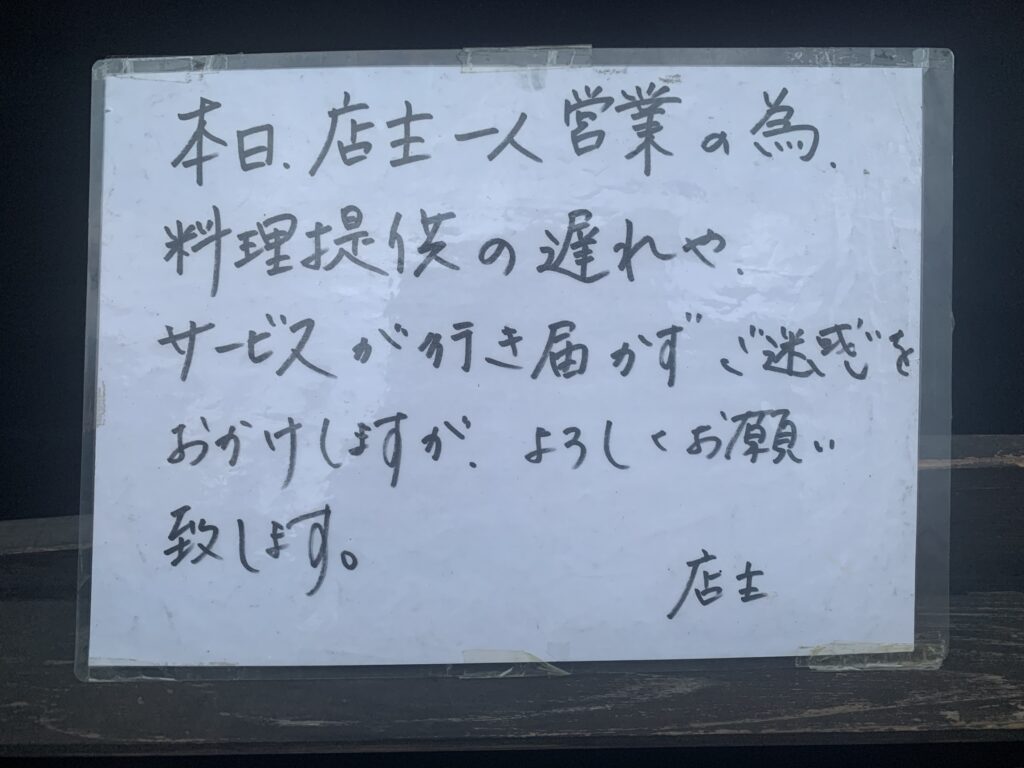 本日、店主一人営業の為、
料理提供の遅れや、
サービスが行き届かずご迷惑を
おかけしますが、よろしくお願い
致します。
店主